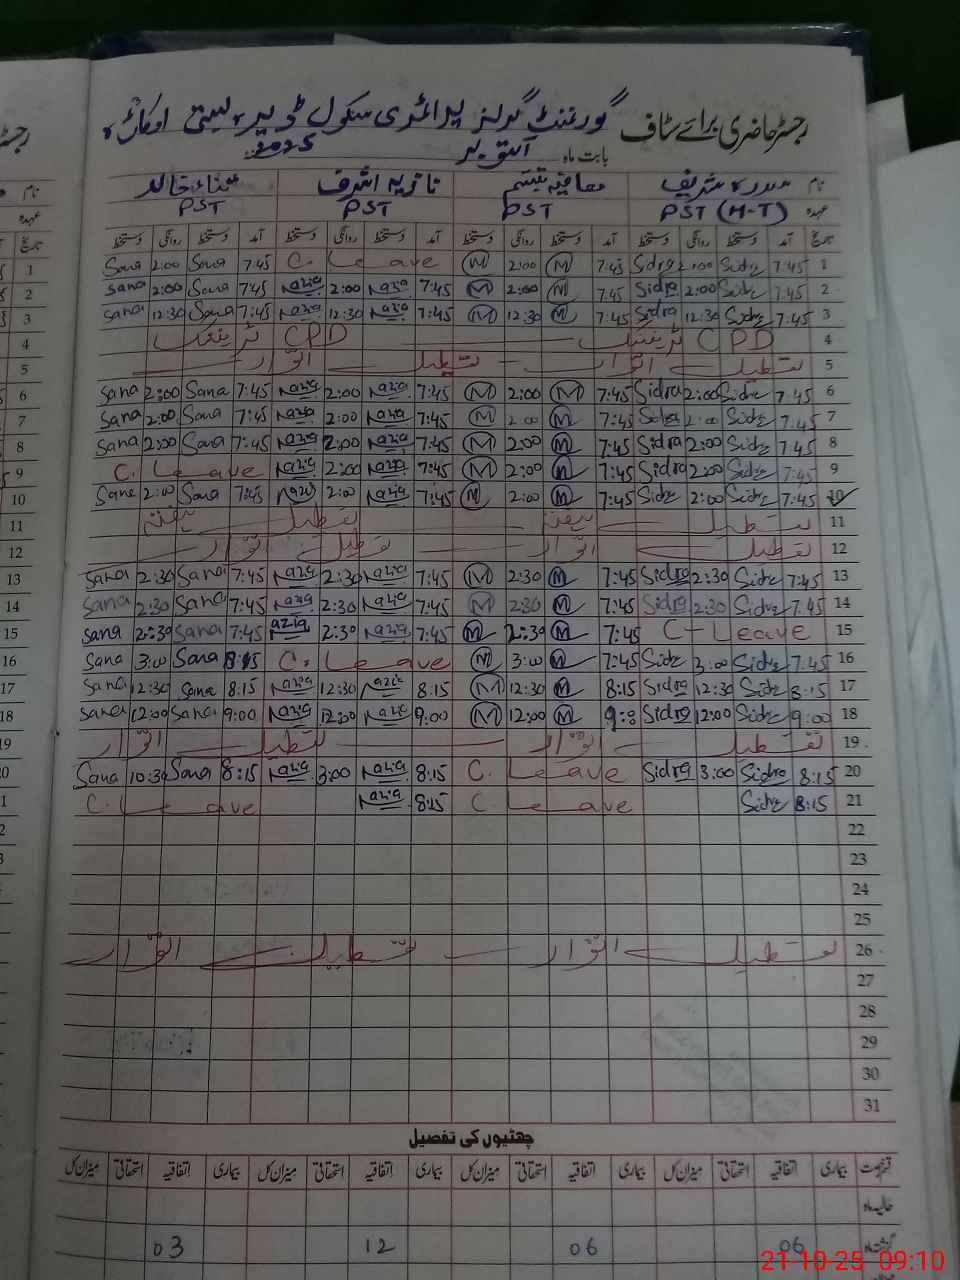 رجسٹر حاضری برائے سٹاف گورنمنٹ گرلز پرائمری سکول
بابت ماہ اکتوبر 2025
نام سدرہ شریف معافیہ تبسم نازیہ اشرف ثناء خالد
عہدہ PST (H-T) PST PST PST
تاریخ آمد دستخط روانگی دستخط آمد دستخط روانگی دستخط آمد دستخط روانگی دستخط آمد دستخط روانگی دستخط
1 7:45 Sidra 2:00 Sidra 7:45 M 2:00 M C. Leave 7:45 Sana 2:00 Sana
2 7:45 Sidra 2:00 Sidra 7:45 M 2:00 M 7:45 Nazia 2:00 Nazia 7:45 Sana 2:00 Sana
3 7:45 Sidra 12:30 Sidra 7:45 M 12:30 M 7:45 Nazia 12:30 Nazia 7:45 Sana 12:30 Sana
4 CPD ٹریننگ CPD ٹریننگ
5 تعطیل اتوار تعطیل اتوار
6 7:45 Sidra 2:00 Sidra 7:45 M 2:00 M 7:45 Nazia 2:00 Nazia 7:45 Sana 2:00 Sana
7 7:45 Sidra 2:00 Sidra 7:45 M 2:00 M 7:45 Nazia 2:00 Nazia 7:45 Sana 2:00 Sana
8 7:45 Sidra 2:00 Sidra 7:45 M 2:00 M 7:45 Nazia 2:00 Nazia 7:45 Sana 2:00 Sana
9 7:45 Sidra 2:00 Sidra 7:45 M 2:00 M 7:45 Nazia 2:00 Nazia C. Leave
10 7:45 Sidra 2:00 Sidra 7:45 M 2:00 M 7:45 Nazia 2:00 Nazia 7:45 Sana 2:00 Sana
11 تعطیل ہفتہ تعطیل ہفتہ
12 تعطیل اتوار تعطیل اتوار
13 7:45 Sidra 2:30 Sidra 7:45 M 2:30 M 7:45 Nazia 2:30 Nazia 7:45 Sana 2:30 Sana
14 7:45 Sidra 2:30 Sidra 7:45 M 2:30 M 7:45 Nazia 2:30 Nazia 7:45 Sana 2:30 Sana
15 C-Leave 7:45 M 2:30 M 7:45 Nazia 2:30 Nazia 7:45 Sana 2:30 Sana
16 7:45 Sidra 3:00 Sidra 7:45 M 3:00 M C. Leave 8:15 Sana 3:00 Sana
17 8:15 Sidra 12:30 Sidra 8:15 M 12:30 M 8:15 Nazia 12:30 Nazia 8:15 Sana 12:30 Sana
18 9:00 Sidra 12:00 Sidra M 12:00 M 9:00 Nazia 12:00 Nazia 9:00 Sana 12:00 Sana
19 تعطیل اتوار تعطیل اتوار
20 8:15 Sidra 3:00 Sidra C. Leave 8:15 Nazia 3:00 Nazia 8:15 Sana 10:30 Sana
21 8:15 Sidra C. Leave 8:15 Nazia C. Leave
22
23
24
25
26 تعطیل اتوار تعطیل اتوار
27
28
29
30
31
چھٹیوں کی تفصیل
قسم رخصت بیماری اتفاقیہ استحقاقی میزان کل بیماری اتفاقیہ استحقاقی میزان کل بیماری اتفاقیہ استحقاقی میزان کل بیماری اتفاقیہ استحقاقی میزان کل
حالیہ ماہ
گزشتہ ماہ 06 06 12 03
21-10-25 09:10